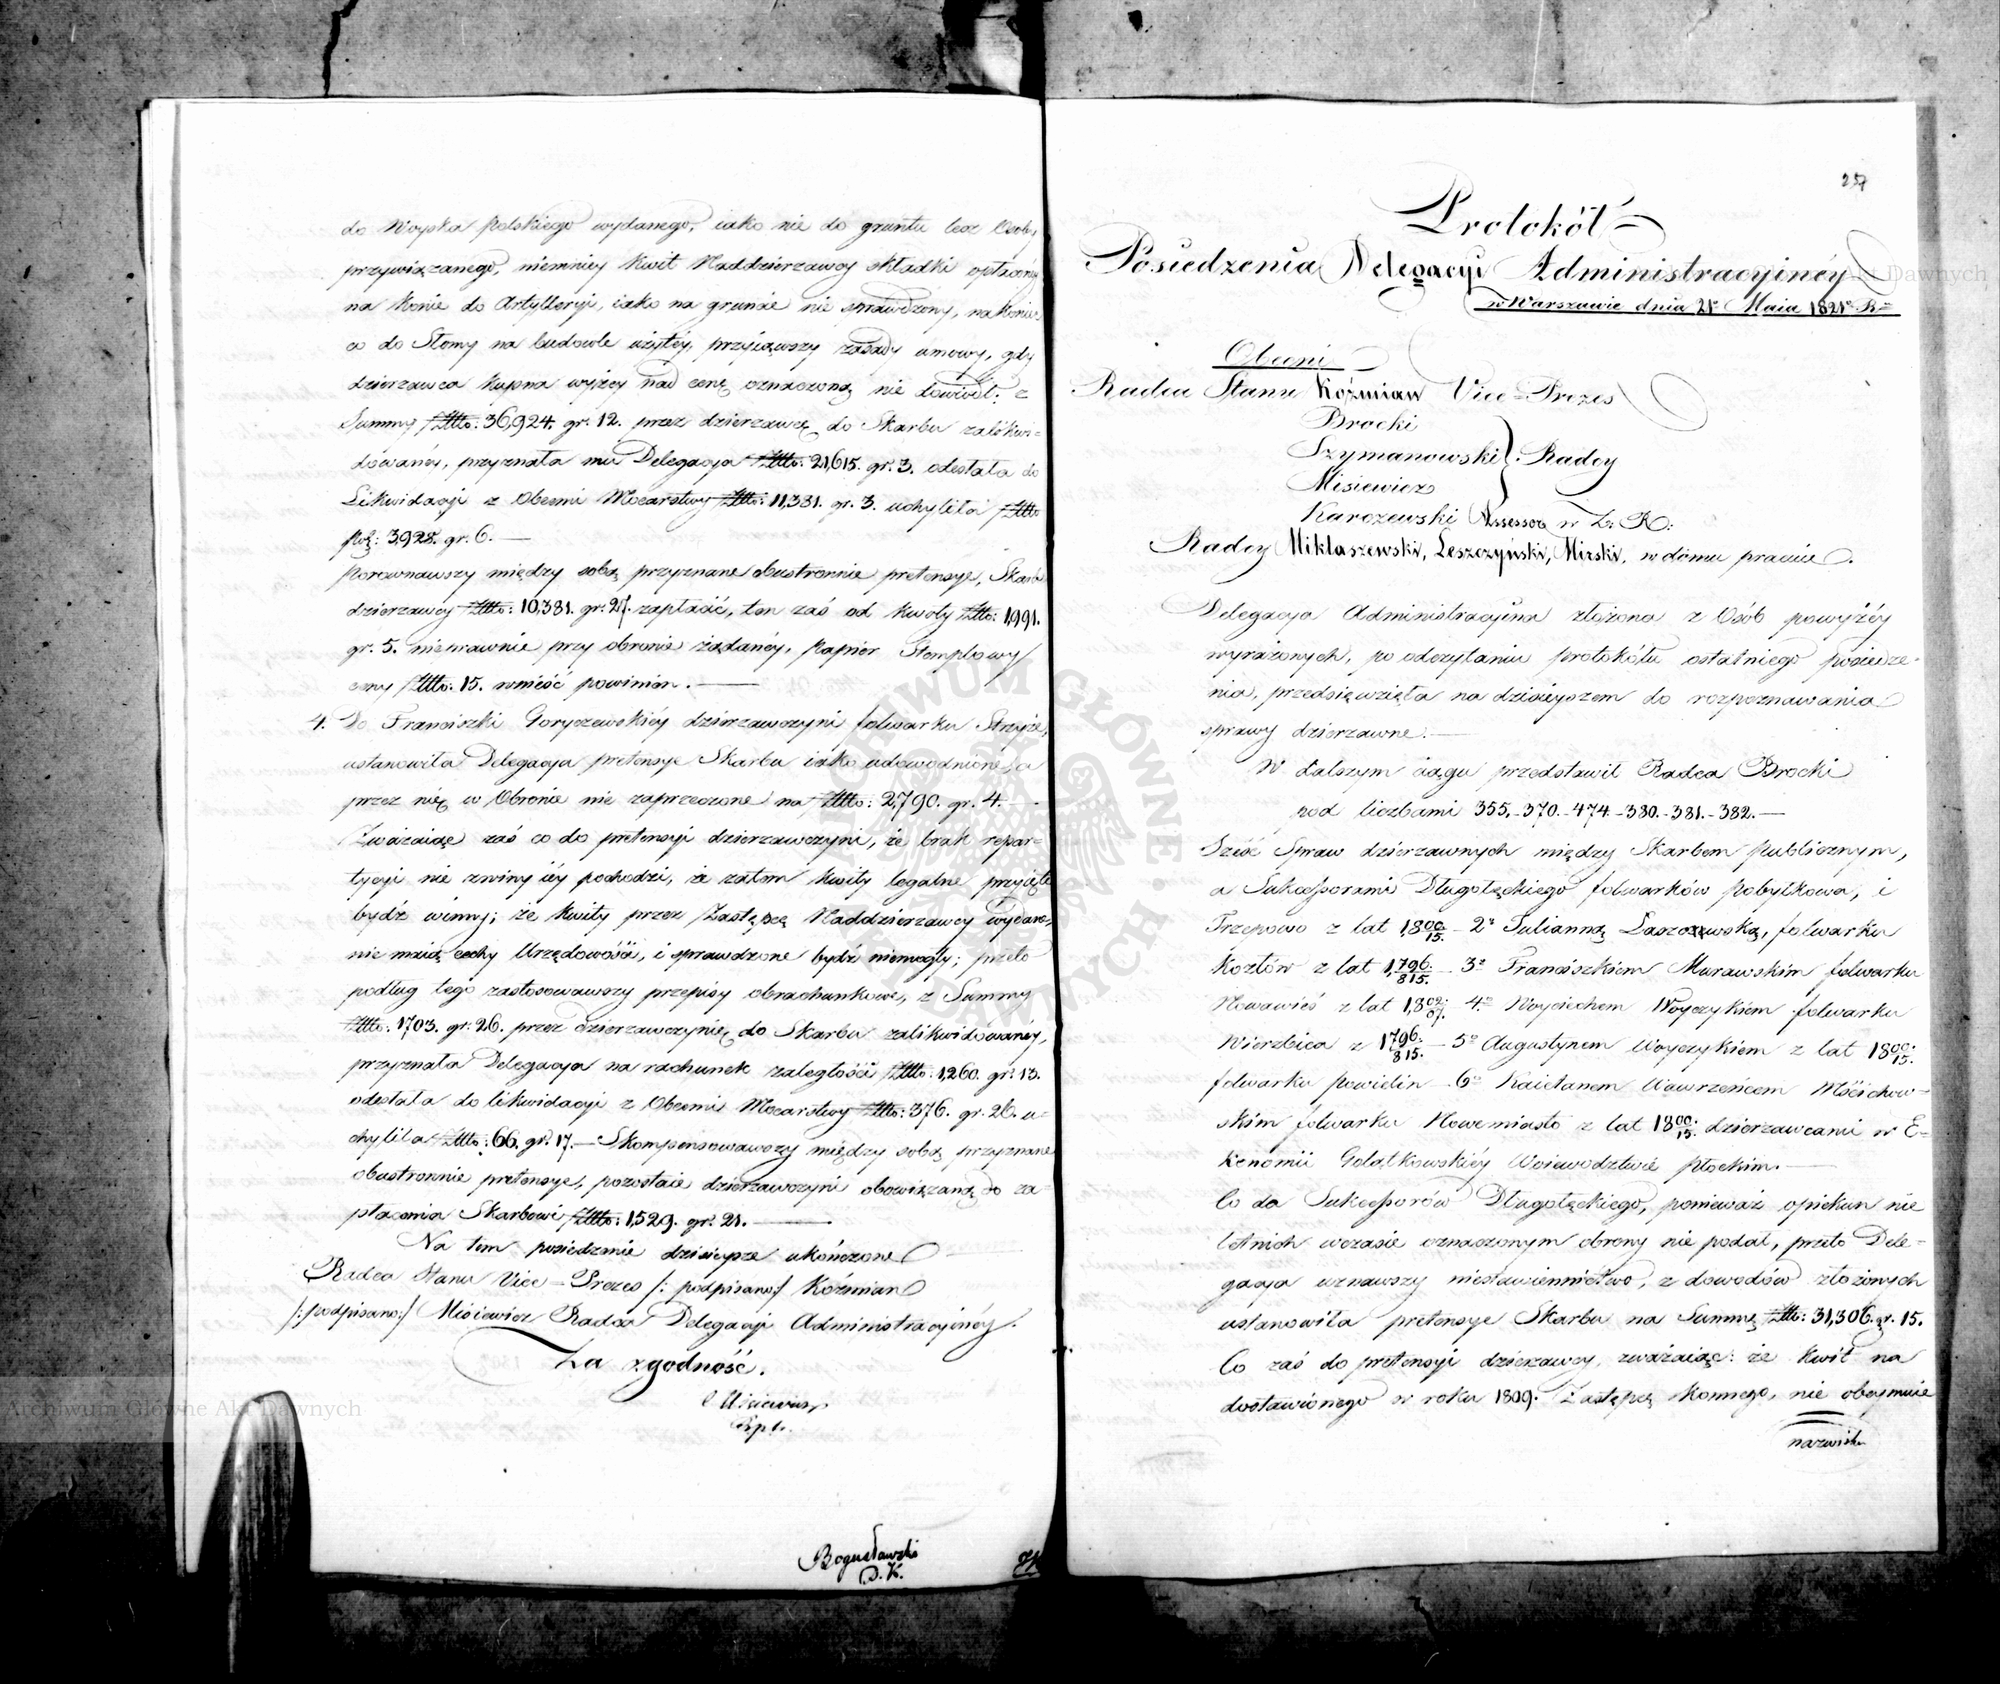 do Woyska polskiego wydanego, iako nie do gruntu lecz Osoby
przywiązanego, niemniey kwit Naddzierzawcy składki opłaconey
na konie do Artylleryi, iako na gruncie nie sprawdzony, nakonie-
co do Słomy na budowle użytey, przyiąwszy zasady umowy, gdy
dzierzawca kupna wyżey nad cenę oznaczoną nie dowiódł: z
Summy Złto: 36,924. gr. 12. przez dzierzawcę do Skarbu zalikwi-
dowaney, przyznała mu Delegacya Złto: 21,615. gr. 3. odesłała do
Likwidacyi z Obcemi Mocarstwy Złto: 11,381. gr. 3. uchyliła Złto
pol: 3,928. gr. 6.
Porownawszy między sobą przyznane obustronnie pretensye, Skarb
dzierzawcy Złto: 10,381. gr. 27. zapłacić, ten zaś od kwoty Złto: 1,991.
gr. 5. nieprawnie przy obronie żądaney, Papier Stemplowy
ceny Złto: 15. wnieść powinien.
4. Do Franciszki Goryszewskiéy dzierzawczyni folwarku Strzyże,
ustanowiła Delegacya pretensye Skarbu iako udowodnione, a
przez nię w Obronie nie zaprzeczone na Złto: 2,790. gr. 4.
Zważaiąc zaś co do pretensyi dzierzawczyni, że brak repar-
tycyi nie zwiny iéy pochodzi, że zatem kwity legalne przyięte
bydź winny; że kwity przez Zastępcę Naddzierzawcy wydane,
nie maią cechy Urzędowości, i sprawdzone bydź niemogły; przeto
podług tego zastosowawszy przepisy obrachunkowe, z Summy
Złto: 1703. gr. 26. przez dzierzawczynię do Skarbu zalikwidowanéy,
przyznała Delegacya na rachunek zaległości Złto: 1,260. gr. 13.
odesłała do likwidacyi z Obcemi Mocarstwy Złto: 376. gr. 26. u-
chyliła Złto: 66. gr. 17. Skompensowawszy między sobą przyznane
obustronnie pretensye, pozostaie dzierzawczyni obowiązaną do za-
płacenia Skarbowi Złto: 1,529. gr. 21.
Na tem posiedzenie dzisieysze ukończone
Radca Stanu Vice-Prezes /: podpisano:/ Koźmian
/: podpisano:/ Misiewicz Radca Delegacyi Administracyinéy.
Za zgodność.
Misiewicz
Bogusławski
D. K.
257
Protokół
Posiedzenia Delegacyi Administracyinéy
w Warszawie dnia 21o Maia 1821o R=
Obecni
Radca Stanu Koźmian Vice-Prezes
Brocki
Szymanowski } Radcy
Misiewicz
Karczewski Assessor w Z: R:
Radcy Miklaszewski, Leszczyński, Mirski, w domu pracuie.
Delegacya Administracyina złożona z Osób powyżéy
wyrażonych, po odczytaniu protokółu ostatniego posiedze-
nia, przedsięwzięła na dzisieyszem do rozpoznawania
sprawy dzierzawne.
W dalszym ciągu przedstawił Radca Brocki
pod liczbami 355.-370.-474.-380.-381.-382.
Sześć Spraw dzierzawnych między Skarbem publicznym,
a Sukcessorami Długołęckiego folwarków Pobyłkowa, i
Trzepowo z lat 1,800/15. 2o Julianną Laszczewską, folwarku
Kozłów z lat 1,796/815. 3o Franciszkiem Murawskim folwarku
Nowawieś z lat 1,802/07. 4o Woyciechem Woyczykiem folwarku
Wierzbica z 1796/815. 5o Augustynem Woyczykiem z lat 1800/15.
folwarku powielin. 6o Kaietanem Wawrzeńcem Mościchow-
skim folwarku Nowemiasto z lat 1800/15. dzierzawcami w E-
konomii Gołątkowskiéy Woiewodztwie płockim.
Co do Sukcessorów Długołęckiego, ponieważ opiekun nie
letnich wczasie oznaczonym obrony nie podał, przeto Dele-
gacya uznawszy niestawiennictwo, z dowodów złożonych
ustanowiła pretensye Skarbu na Summę Złto: 31,306. gr. 15.
Co zaś do pretensyi dzierzawcy, zważaiąc: że kwit na
dostawionego w roku 1809. Zastępcę konnego, nie obeymuie
nazwiska
Archiwum Główne Akt Dawnych